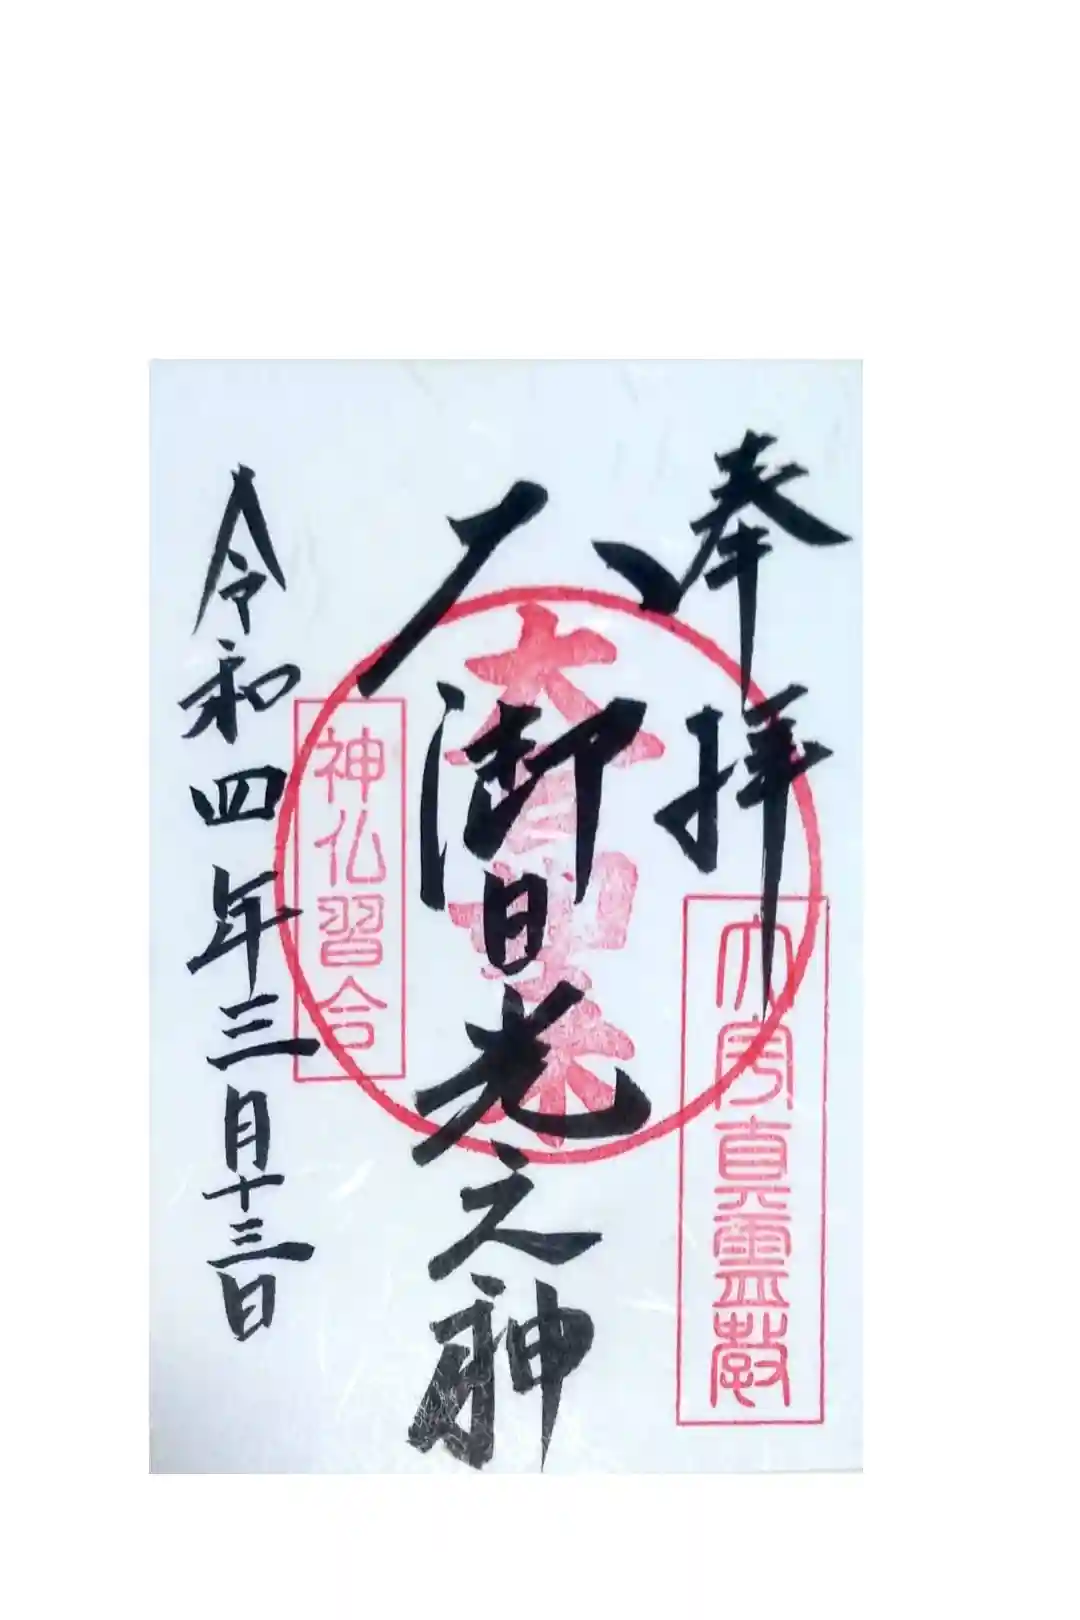 奉拝
真霊教
八御日光之神
神仏習合
令和四年三月十三日